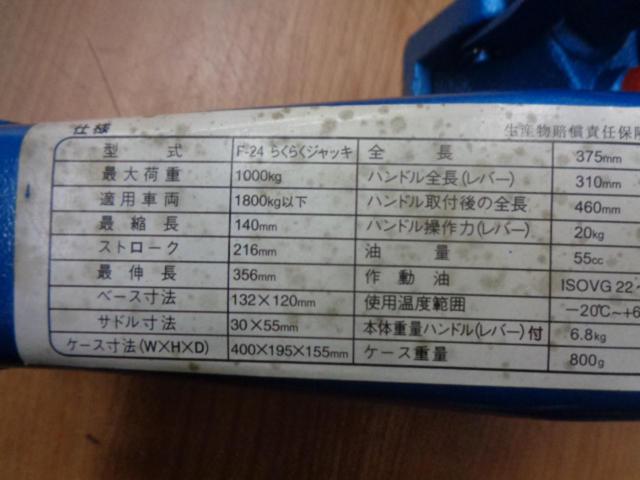 仕様
生産物賠償責任保険
型式 F-24 らくらくジャッキ 全長 375mm
最大荷重 1000kg ハンドル全長(レバー) 310mm
適用車両 1800kg以下 ハンドル取付後の全長 460mm
最縮長 140mm ハンドル操作力(レバー) 20kg
ストローク 216mm 油量 55cc
最伸長 356mm 作動油 ISOVG 22~
ベース寸法 132×120mm 使用温度範囲 -20℃~+6
サドル寸法 30×55mm 本体重量ハンドル(レバー)付 6.8kg
ケース寸法(W×H×D) 400×195×155mm ケース重量 800g